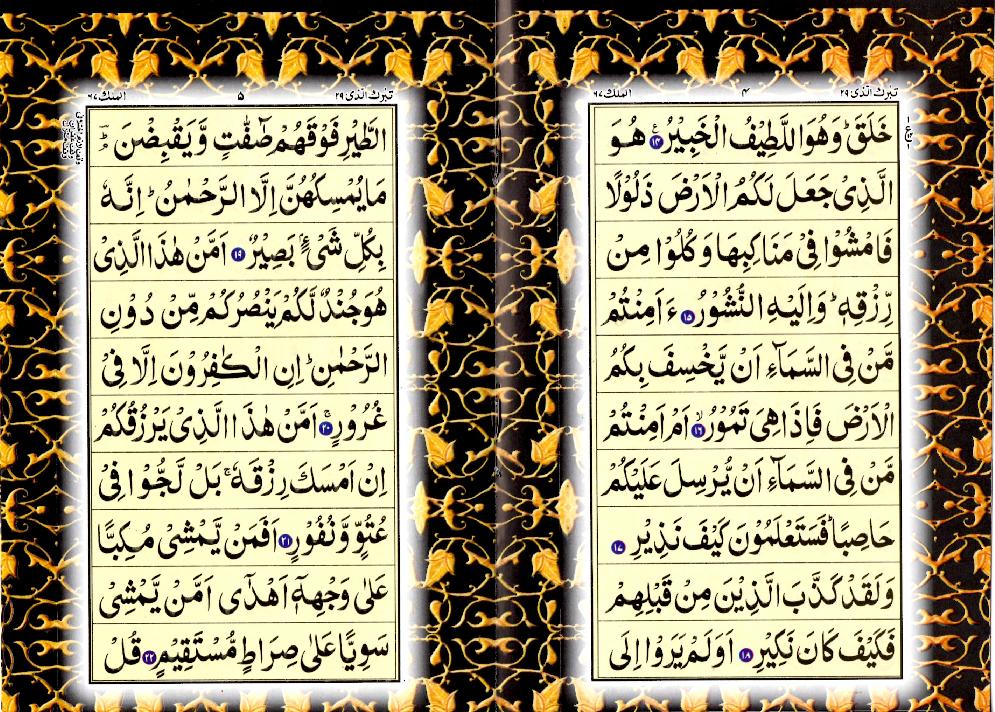 تبٰرك الذى ٢٩
٤
الملك ٦٧
خَلَقَ ؕ وَهُوَ اللَّطِيْفُ الْخَبِيْرُ ۱۴ هُوَ
الَّذِىْ جَعَلَ لَكُمُ الْاَرْضَ ذَلُوْلًا
فَامْشُوْا فِىْ مَنَاكِبِهَا وَكُلُوْا مِنْ
رِّزْقِهٖ ؕ وَاِلَيْهِ النُّشُوْرُ ۱۵ ءَاَمِنْتُمْ
مَّنْ فِى السَّمَآءِ اَنْ يَّخْسِفَ بِكُمُ
الْاَرْضَ فَاِذَا هِىَ تَمُوْرُ ۙ ۱۶ اَمْ اَمِنْتُمْ
مَّنْ فِى السَّمَآءِ اَنْ يُّرْسِلَ عَلَيْكُمْ
حَاصِبًا ؕ فَسَتَعْلَمُوْنَ كَيْفَ نَذِيْرِ ۱۷
وَلَقَدْ كَذَّبَ الَّذِيْنَ مِنْ قَبْلِهِمْ
فَكَيْفَ كَانَ نَكِيْرِ ۱۸ اَوَلَمْ يَرَوْا اِلَى
تبٰرك الذى ٢٩
۵
الملك ٦٧
الطَّيْرِ فَوْقَهُمْ صٰٓفّٰتٍ وَّيَقْبِضْنَ ؔۘ
مَا يُمْسِكُهُنَّ اِلَّا الرَّحْمٰنُ ؕ اِنَّهٗ
بِكُلِّ شَىْءٍۢ بَصِيْرٌ ۱۹ اَمَّنْ هٰذَا الَّذِىْ
هُوَ جُنْدٌ لَّكُمْ يَنْصُرُكُمْ مِّنْ دُوْنِ
الرَّحْمٰنِ ؕ اِنِ الْكٰفِرُوْنَ اِلَّا فِىْ
غُرُوْرٍ ۚ ۲۰ اَمَّنْ هٰذَا الَّذِىْ يَرْزُقُكُمْ
اِنْ اَمْسَكَ رِزْقَهٗ ۚ بَلْ لَّجُّوْا فِىْ
عُتُوٍّ وَّنُفُوْرٍ ۲۱ اَفَمَنْ يَّمْشِىْ مُكِبًّا
عَلٰى وَجْهِهٖۤ اَهْدٰٓى اَمَّنْ يَّمْشِىْ
سَوِيًّا عَلٰى صِرَاطٍ مُّسْتَقِيْمٍ ۲۲ قُلْ